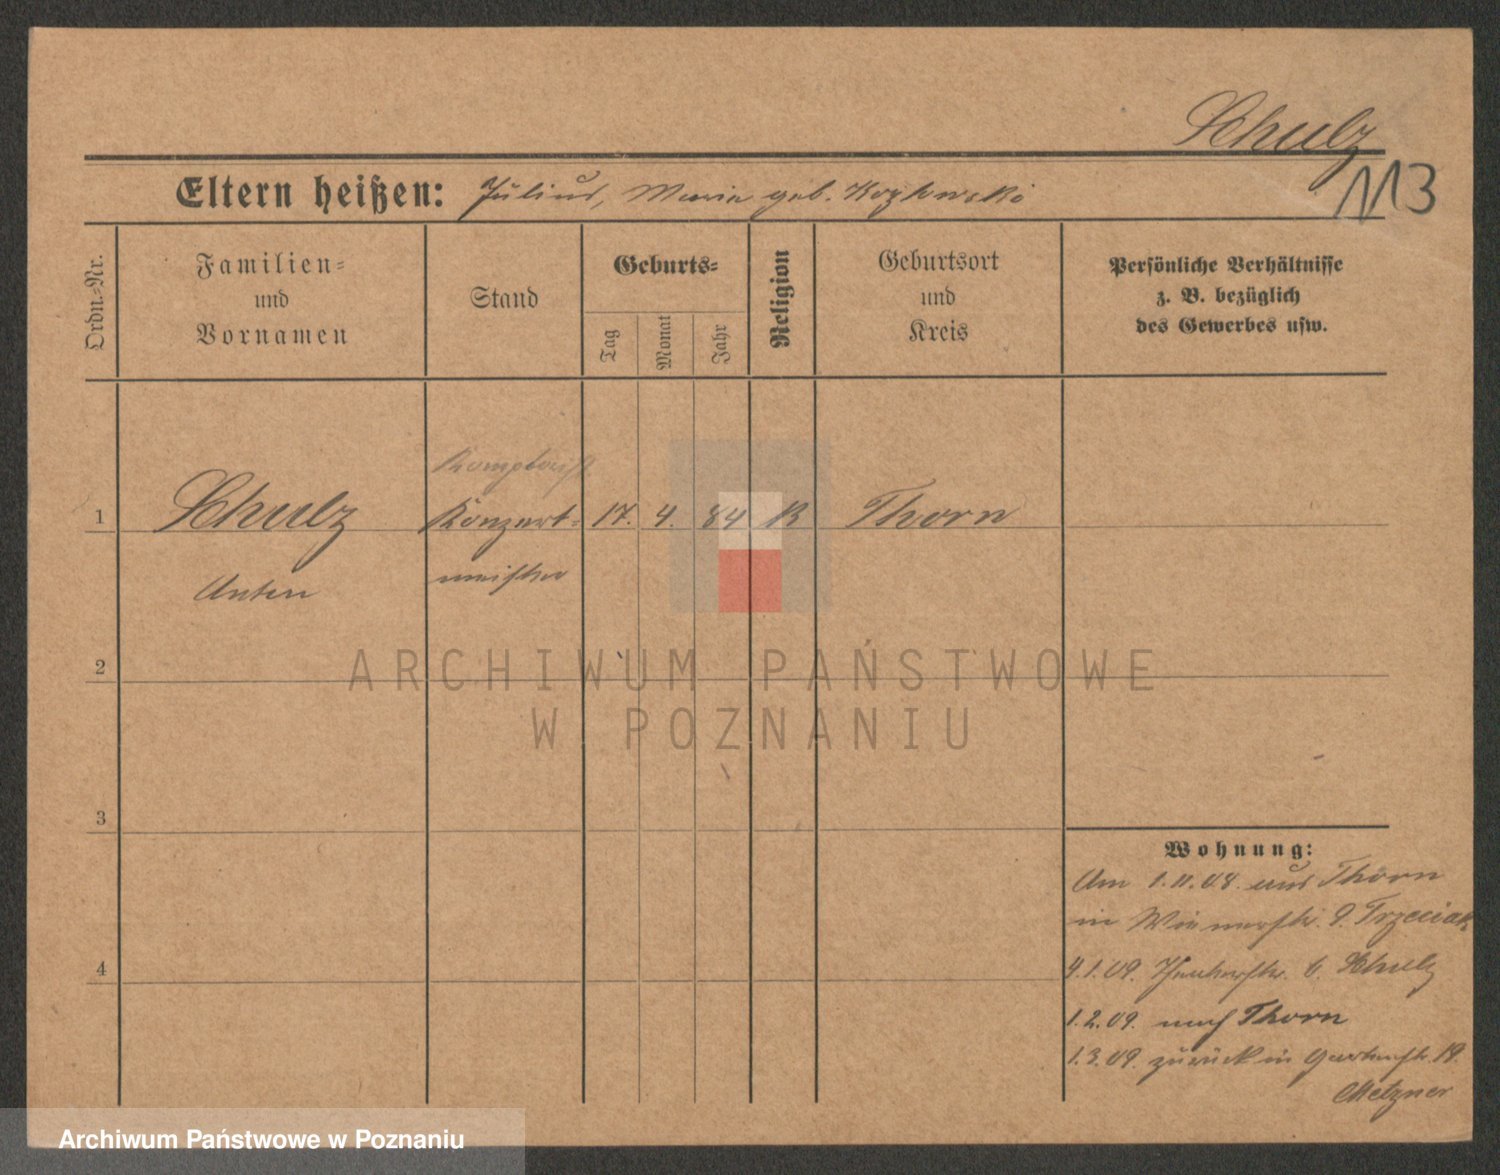 Schulz
113
Eltern heißen: Julius, Marie geb. Kozlowski
Ordn.-Nr.
Familien-
und
Vornamen
Stand
Geburts-
Tag
Monat
Jahr
Religion
Geburtsort
und
Kreis
Persönliche Verhältnisse
z. B. bezüglich
des Gewerbes usw.
1 Schulz Konzert- 17. 4. 84 K Thorn
Anton meister
ARCHIWUM PAŃSTWOWE
W POZNANIU
2
3
4
Wohnung:
Am 1.11.08. aus Thorn
in Wienerstr. 9. Trzeciak
4.1.09. b. Schulz
1.2.09. nach Thorn
1.3.09. zurück in Gartenstr. 19.
Metzner
Archiwum Państwowe w Poznaniu